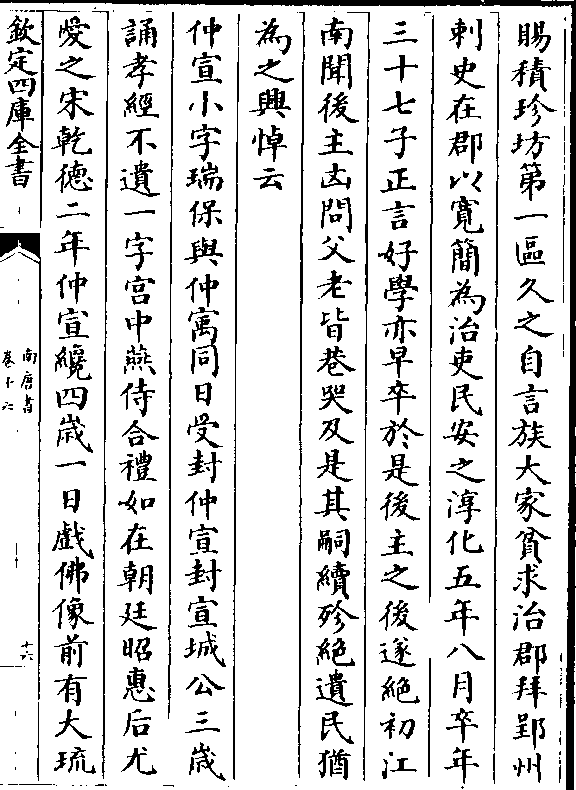 賜積珍坊第一區久之自言族大家貧求治郡拜郢州
刺史在郡以寛簡為治吏民安之淳化五年八月卒年
三十七子正言好學亦早卒於是後主之後遂絶初江
南聞後主凶問父老皆巷哭及是其嗣續殄絶遺民猶
為之興悼云
仲宣小字瑞保與仲寓同日受封仲宣封宣城公三歳
誦孝經不遺一字宫中燕侍合禮如在朝廷昭惠后尤
愛之宋乾徳二年仲宣纔四歳一日戲佛像前有大琉
欽定四庫全書
南唐書
卷十六
十六